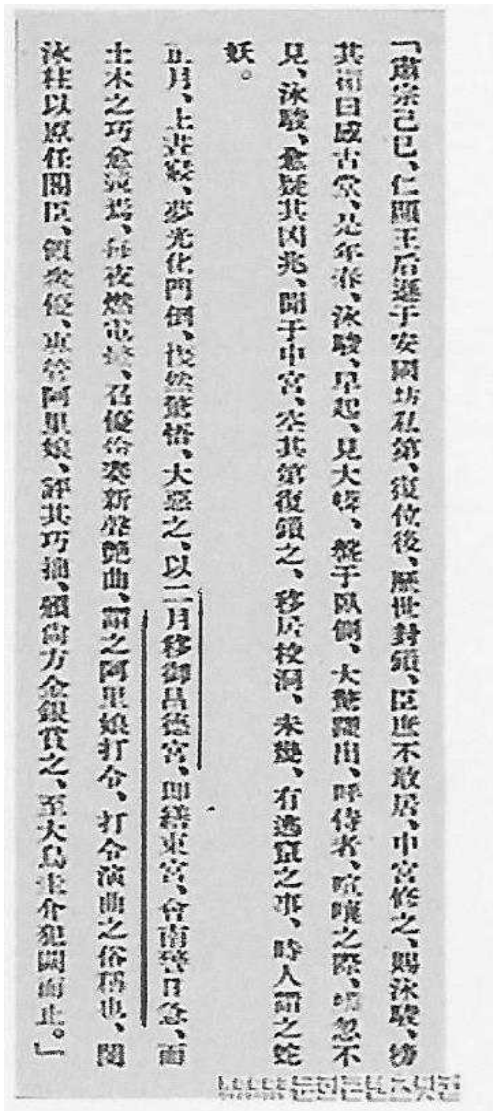 「肅宗己巳、仁顯王后遜于安國坊私第、復位後、歷世封鎖、臣庶不敢居、中宮修之、賜泳駿、榜
其楣曰感古堂、是年春、泳駿、早起、見大蟒、盤于臥側、大驚躍出、呼侍者、喧嚷之際、蟒忽不
見、泳駿、愈疑其凶兆、聞于中宮、空其第復鎖之、移居校洞、未幾、有逃竄之事、時人謂之蛇
妖。
正月、上晝寢、夢光化門倒、然驚悟、大惡之、以二月移御昌德宮、卽繕東宮、會南警日急、而
土木之巧愈焉、每夜燃電燈、召優伶奏新聲艶曲、謂之阿里娘打令、打令演曲之俗稱也、閔
泳柱以原任閣臣、領衆優、專管阿里娘、評其巧拙、尙方金銀賞之、至大鳥圭介犯闕而止。」